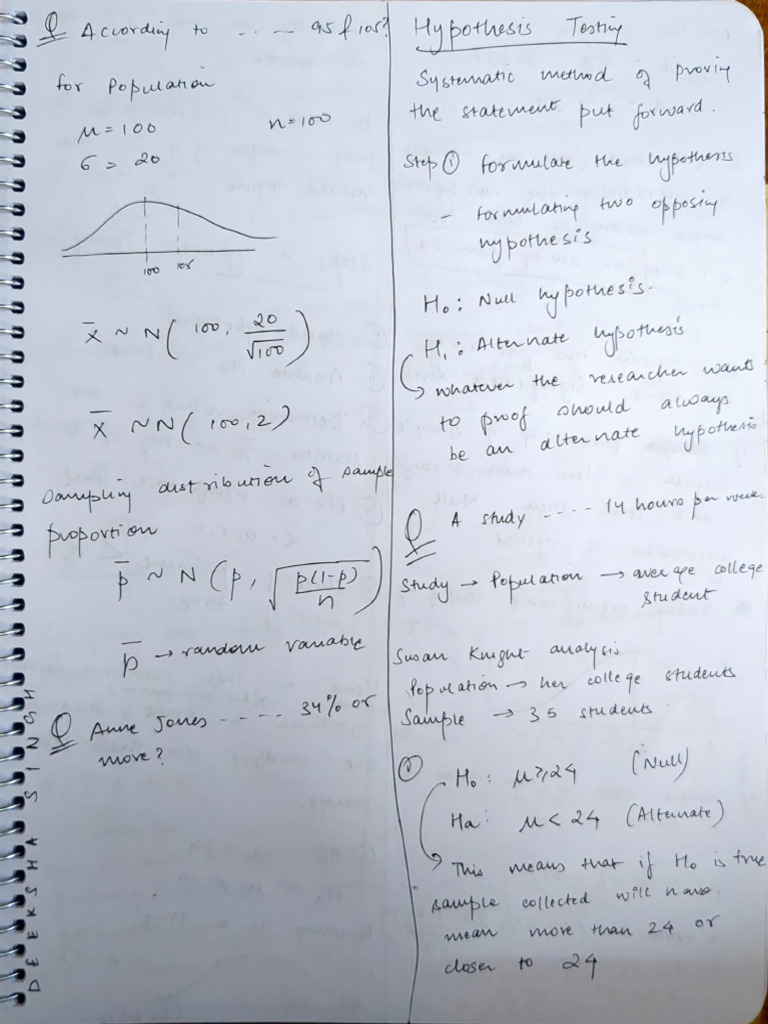 Q According to ... -- 95 & 105?
for Population
μ = 100 n = 100
σ = 20
100 105
x̄ ~ N( 100, 20/√100 )
x̄ ~ N( 100, 2)
Sampling distribution of sample
proportion
p̄ ~ N (p, √(p(1-p)/n))
p̄ → random variable
Q Anne Jones ---- 34% or
more?
DEEKSHA SINGH
Hypothesis Testing
Systematic method of proving
the statement put forward.
Step ① formulate the hypothesis
- formulating two opposing
hypothesis
H₀ : Null hypothesis.
H₁ : Alternate hypothesis
whatever the researcher wants
to proof should always
be an alternate hypothesis
Q A study ---- 14 hours per week.
Study → Population → average college
student
Susan Knight analysis
Population → her college students
Sample → 35 students
① H₀ : μ ≥ 24 (Null)
Ha : μ < 24 (Alternate)
This means that if H₀ is true
sample collected will have
mean more than 24 or
closer to 24